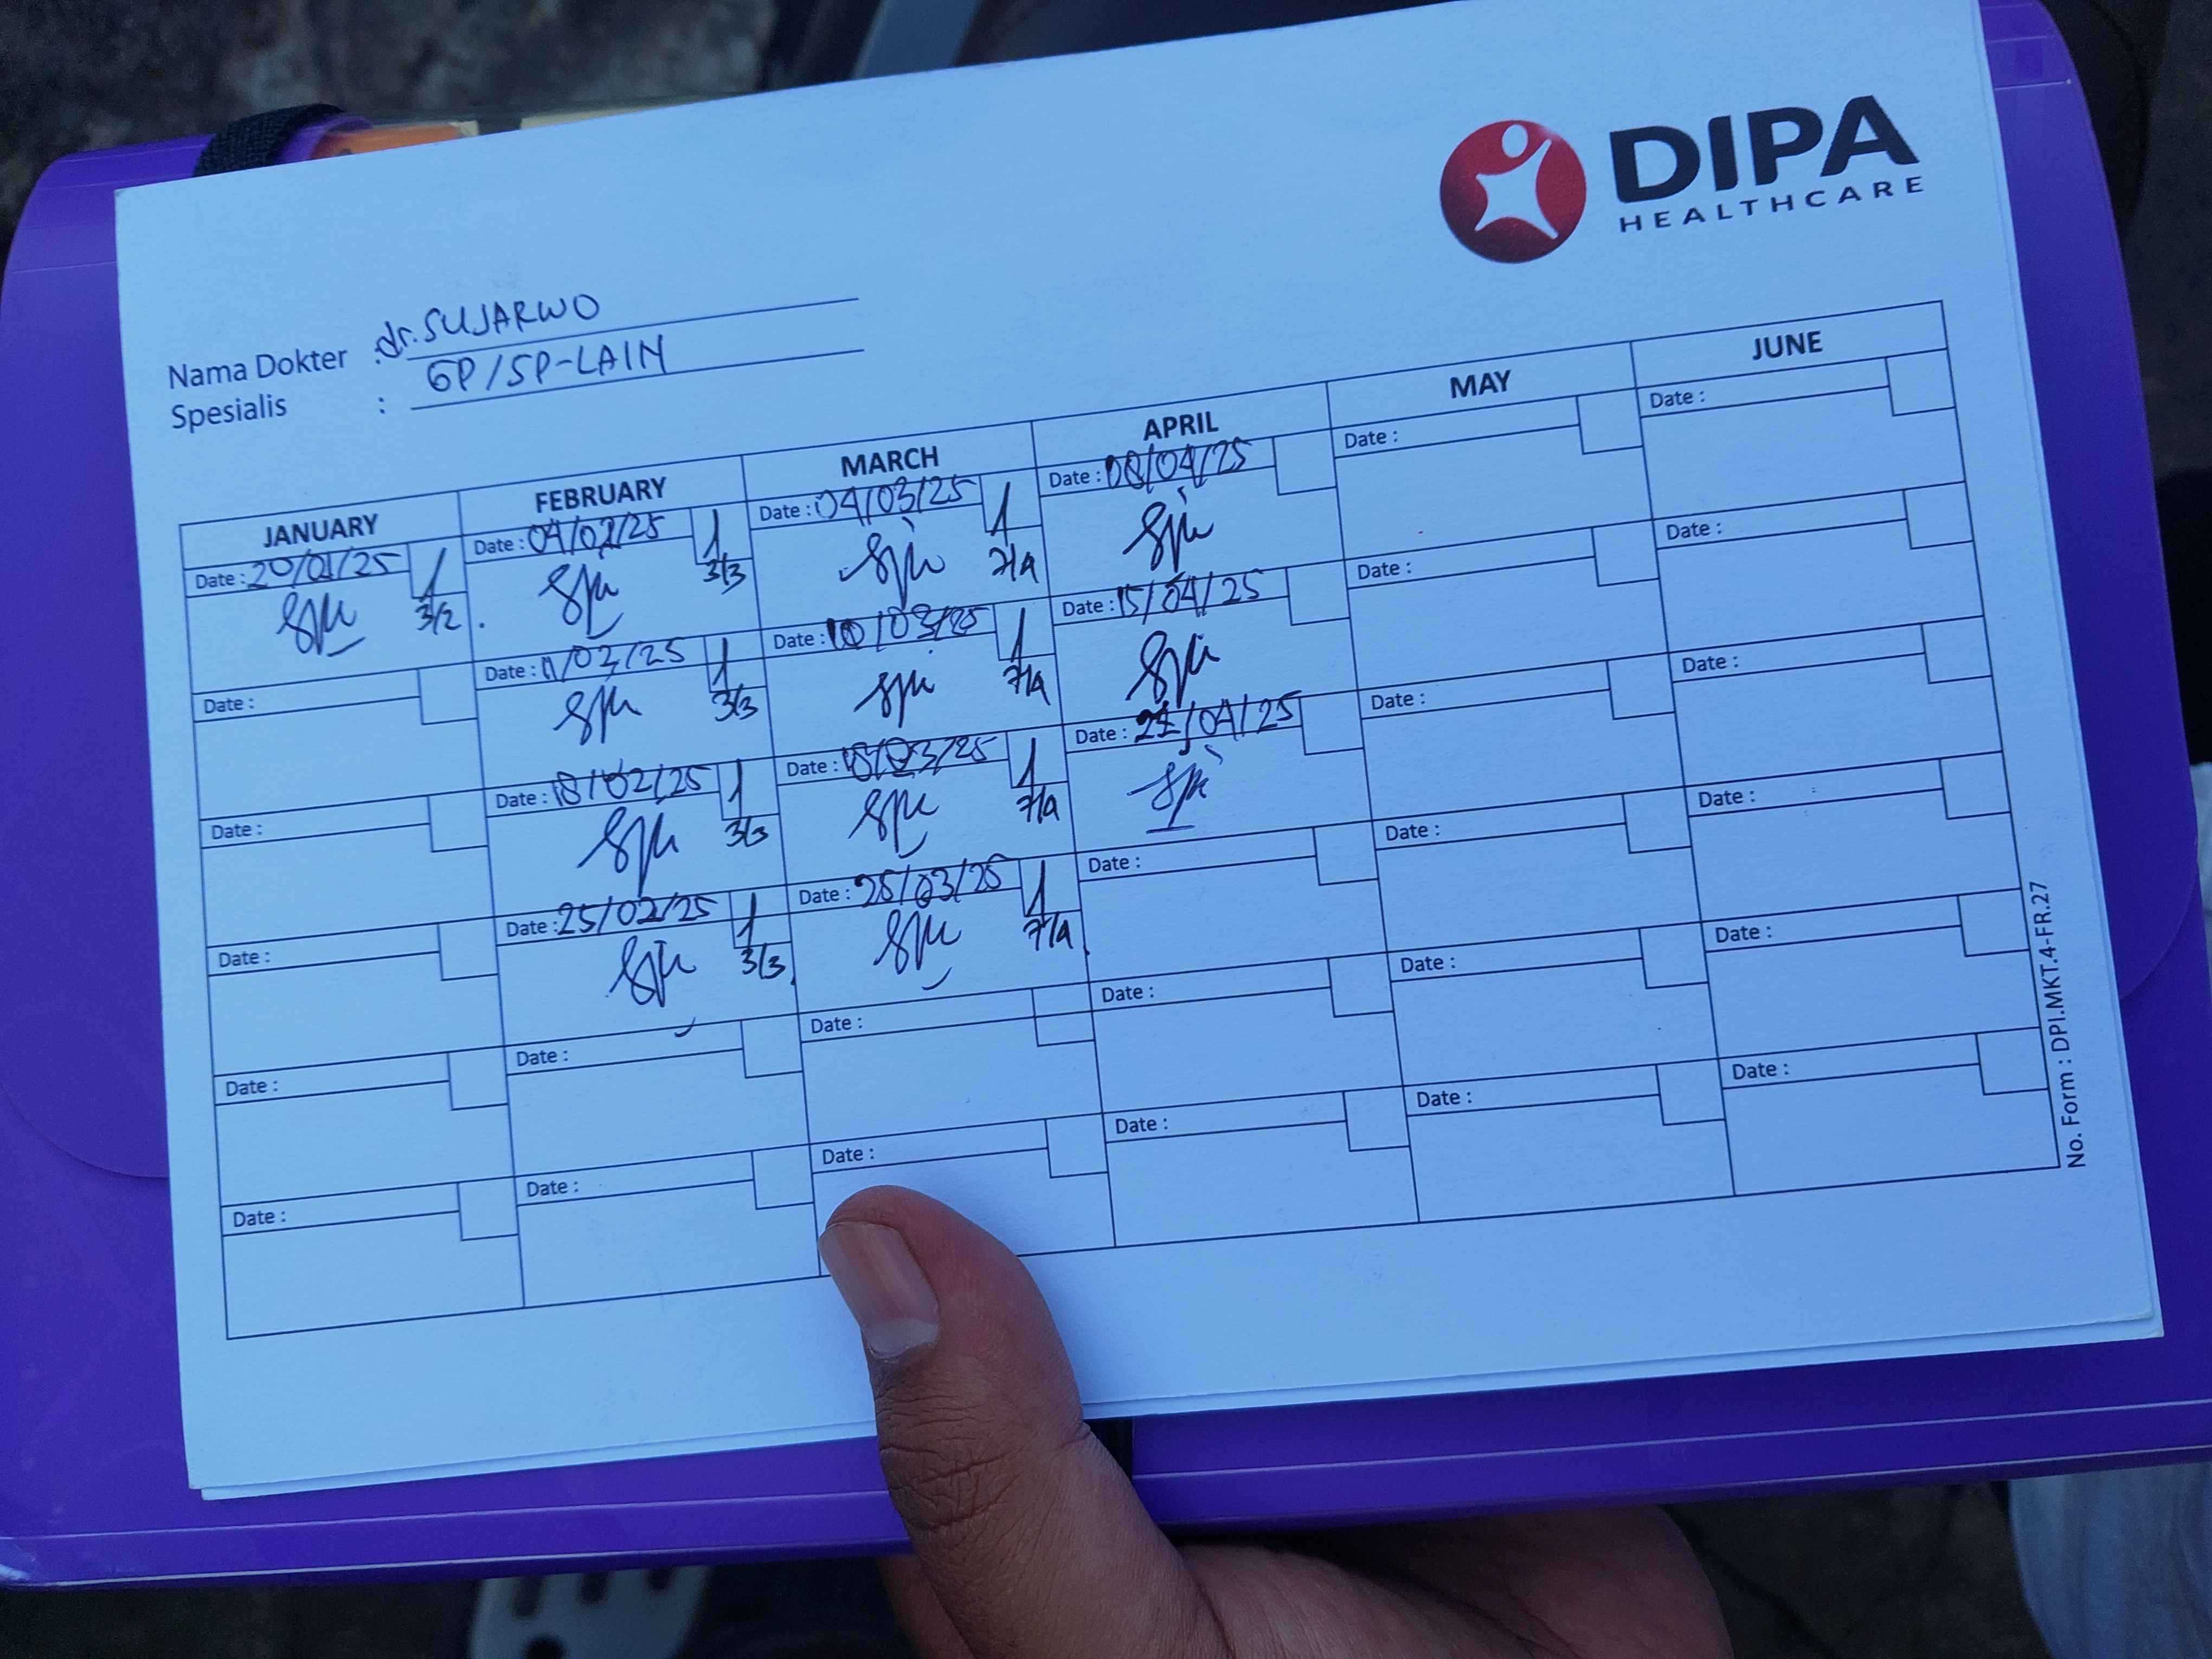 DIPA
HEALTHCARE
Nama Dokter : dr. SUJARWO
Spesialis : GP/SP-LAIN
JANUARY FEBRUARY MARCH APRIL MAY JUNE
Date : 20/01/25 Date : 04/02/25 Date : 04/03/25 Date : 08/04/25 Date : Date :
3/2 3/3 7/4
Date : Date : 11/02/25 Date : 10/03/25 Date : 15/04/25 Date : Date :
3/3 7/4
Date : Date : 18/02/25 Date : 18/03/25 Date : 22/04/25 Date : Date :
3/3 7/4
Date : Date : 25/02/25 Date : 25/03/25 Date : Date : Date :
3/3 7/4
Date : Date : Date : Date : Date : Date :
Date : Date : Date : Date : Date : Date :
No. Form : DPI.MKT.4-FR.27